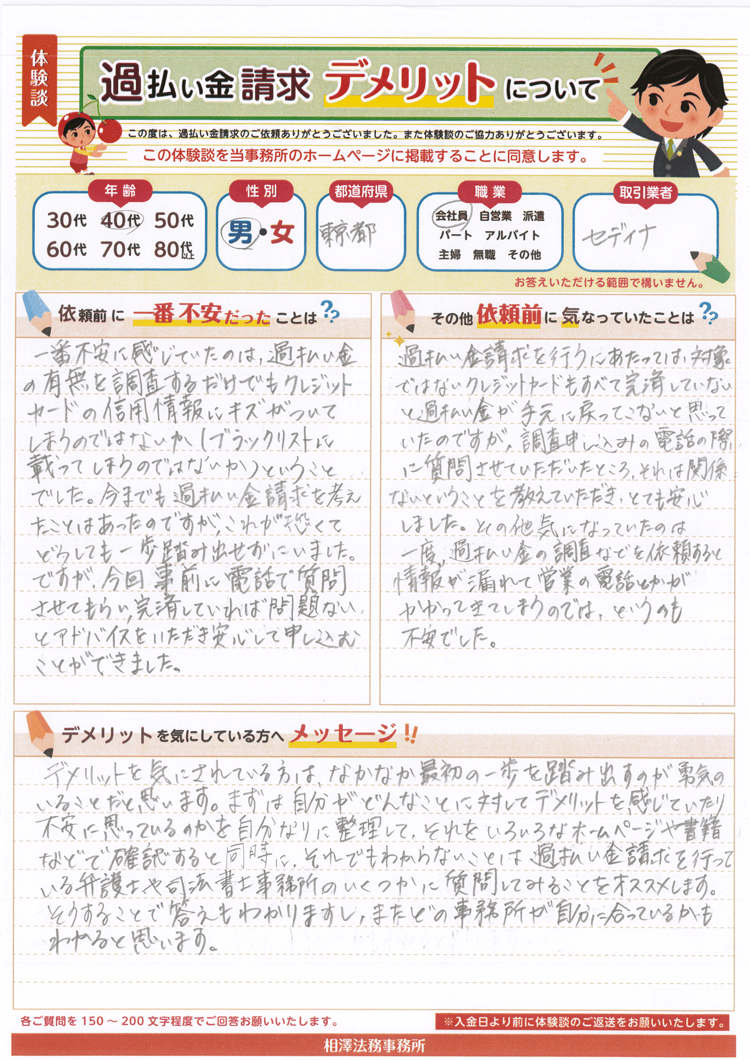 体験談
過払い金請求 デメリットについて
この度は、過払い金請求のご依頼ありがとうございました。また体験談のご協力ありがとうございます。
この体験談を当事務所のホームページに掲載することに同意します。
年齢
30代 40代 50代
60代 70代 80代以上
性別
男・女
都道府県
東京都
職業
会社員 自営業 派遣
パート アルバイト
主婦 無職 その他
取引業者
セディナ
お答えいただける範囲で構いません。
依頼前に 一番不安だった ことは??
一番不安に感じていたのは、過払い金
の有無を調査するだけでもクレジット
カードの信用情報にキズがついて
しまうのではないか(ブラックリストに
載ってしまうのではないか)ということ
でした。今までも過払い金請求を考え
たことはあったのですが、これが恐くて
どうしても一歩踏み出せずにいました。
ですが、今回事前に電話で質問
させてもらい、完済していれば問題ない
とアドバイスをいただき安心して申し込む
ことができました。
その他 依頼前に気なっていたことは??
過払い金請求を行うにあたっては、対象
ではないクレジットカードもすべて完済していない
と過払い金が手元に戻ってこないと思って
いたのですが、調査申し込みの電話の際
に質問させていただいたところ、それは関係
ないということを教えていただき、とても安心
しました。その他気になっていたのは
一度、過払い金の調査などを依頼すると
情報が漏れて営業の電話とかが
かかってきてしまうのでは、というのも
不安でした。
デメリットを気にしている方へ メッセージ!!
デメリットを気にされている方は、なかなか最初の一歩を踏み出すのが勇気の
いることだと思います。まずは自分がどんなことに対してデメリットを感じていたり
不安に思っているのかを自分なりに整理して、それをいろいろなホームページや書籍
などで確認すると同時に、それでもわからないことは過払い金請求を行って
いる弁護士や司法書士事務所のいくつかに質問してみることをオススメします。
そうすることで答えもわかりますし、またどの事務所が自分に合っているかも
わかると思います。
各ご質問を150～200文字程度でご回答お願いいたします。
※入金日より前に体験談のご返送をお願いいたします。
相澤法務事務所